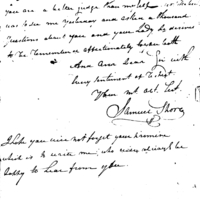 you are a better judge than myself
was to see me yesterday and asked a thousand
Questions about you and your Lady he desires
to be Remembered affectionately to you both
And am Dear Sir with
every sentiment of
Your most obt. Sert.
Samuel Shore
I hope you will not forget your promise
which is to write me; who will always be
happy to hear from you